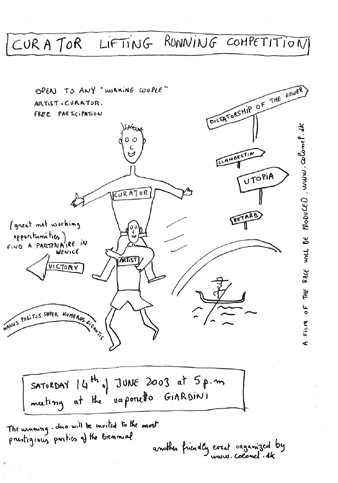 CURATOR LIFTING RUNNING COMPETITION
OPEN TO ANY "WORKING COUPLE"
ARTIST-CURATOR.
FREE PARTICIPATION
DICTATORSHIP OF THE VIEWER
CLANDESTIN
UTOPIA
RETARD
CURATOR
(great net working
opportunities
FIND A PARTENAIRE IN
VENICE
ARTIST
VICTORY
NANUS POSITUS SUPER HUMEROS GIGANTIS
A FILM OF THE RACE WILL BE PRODUCED. www.colonel.dk
SATURDAY 14th of JUNE 2003 at 5 p.m
meeting at the vaporetto GIARDINI
The winning-duo will be invited to the most
prestigious parties of the biennial
another friendly event organized by
www.colonel.dk